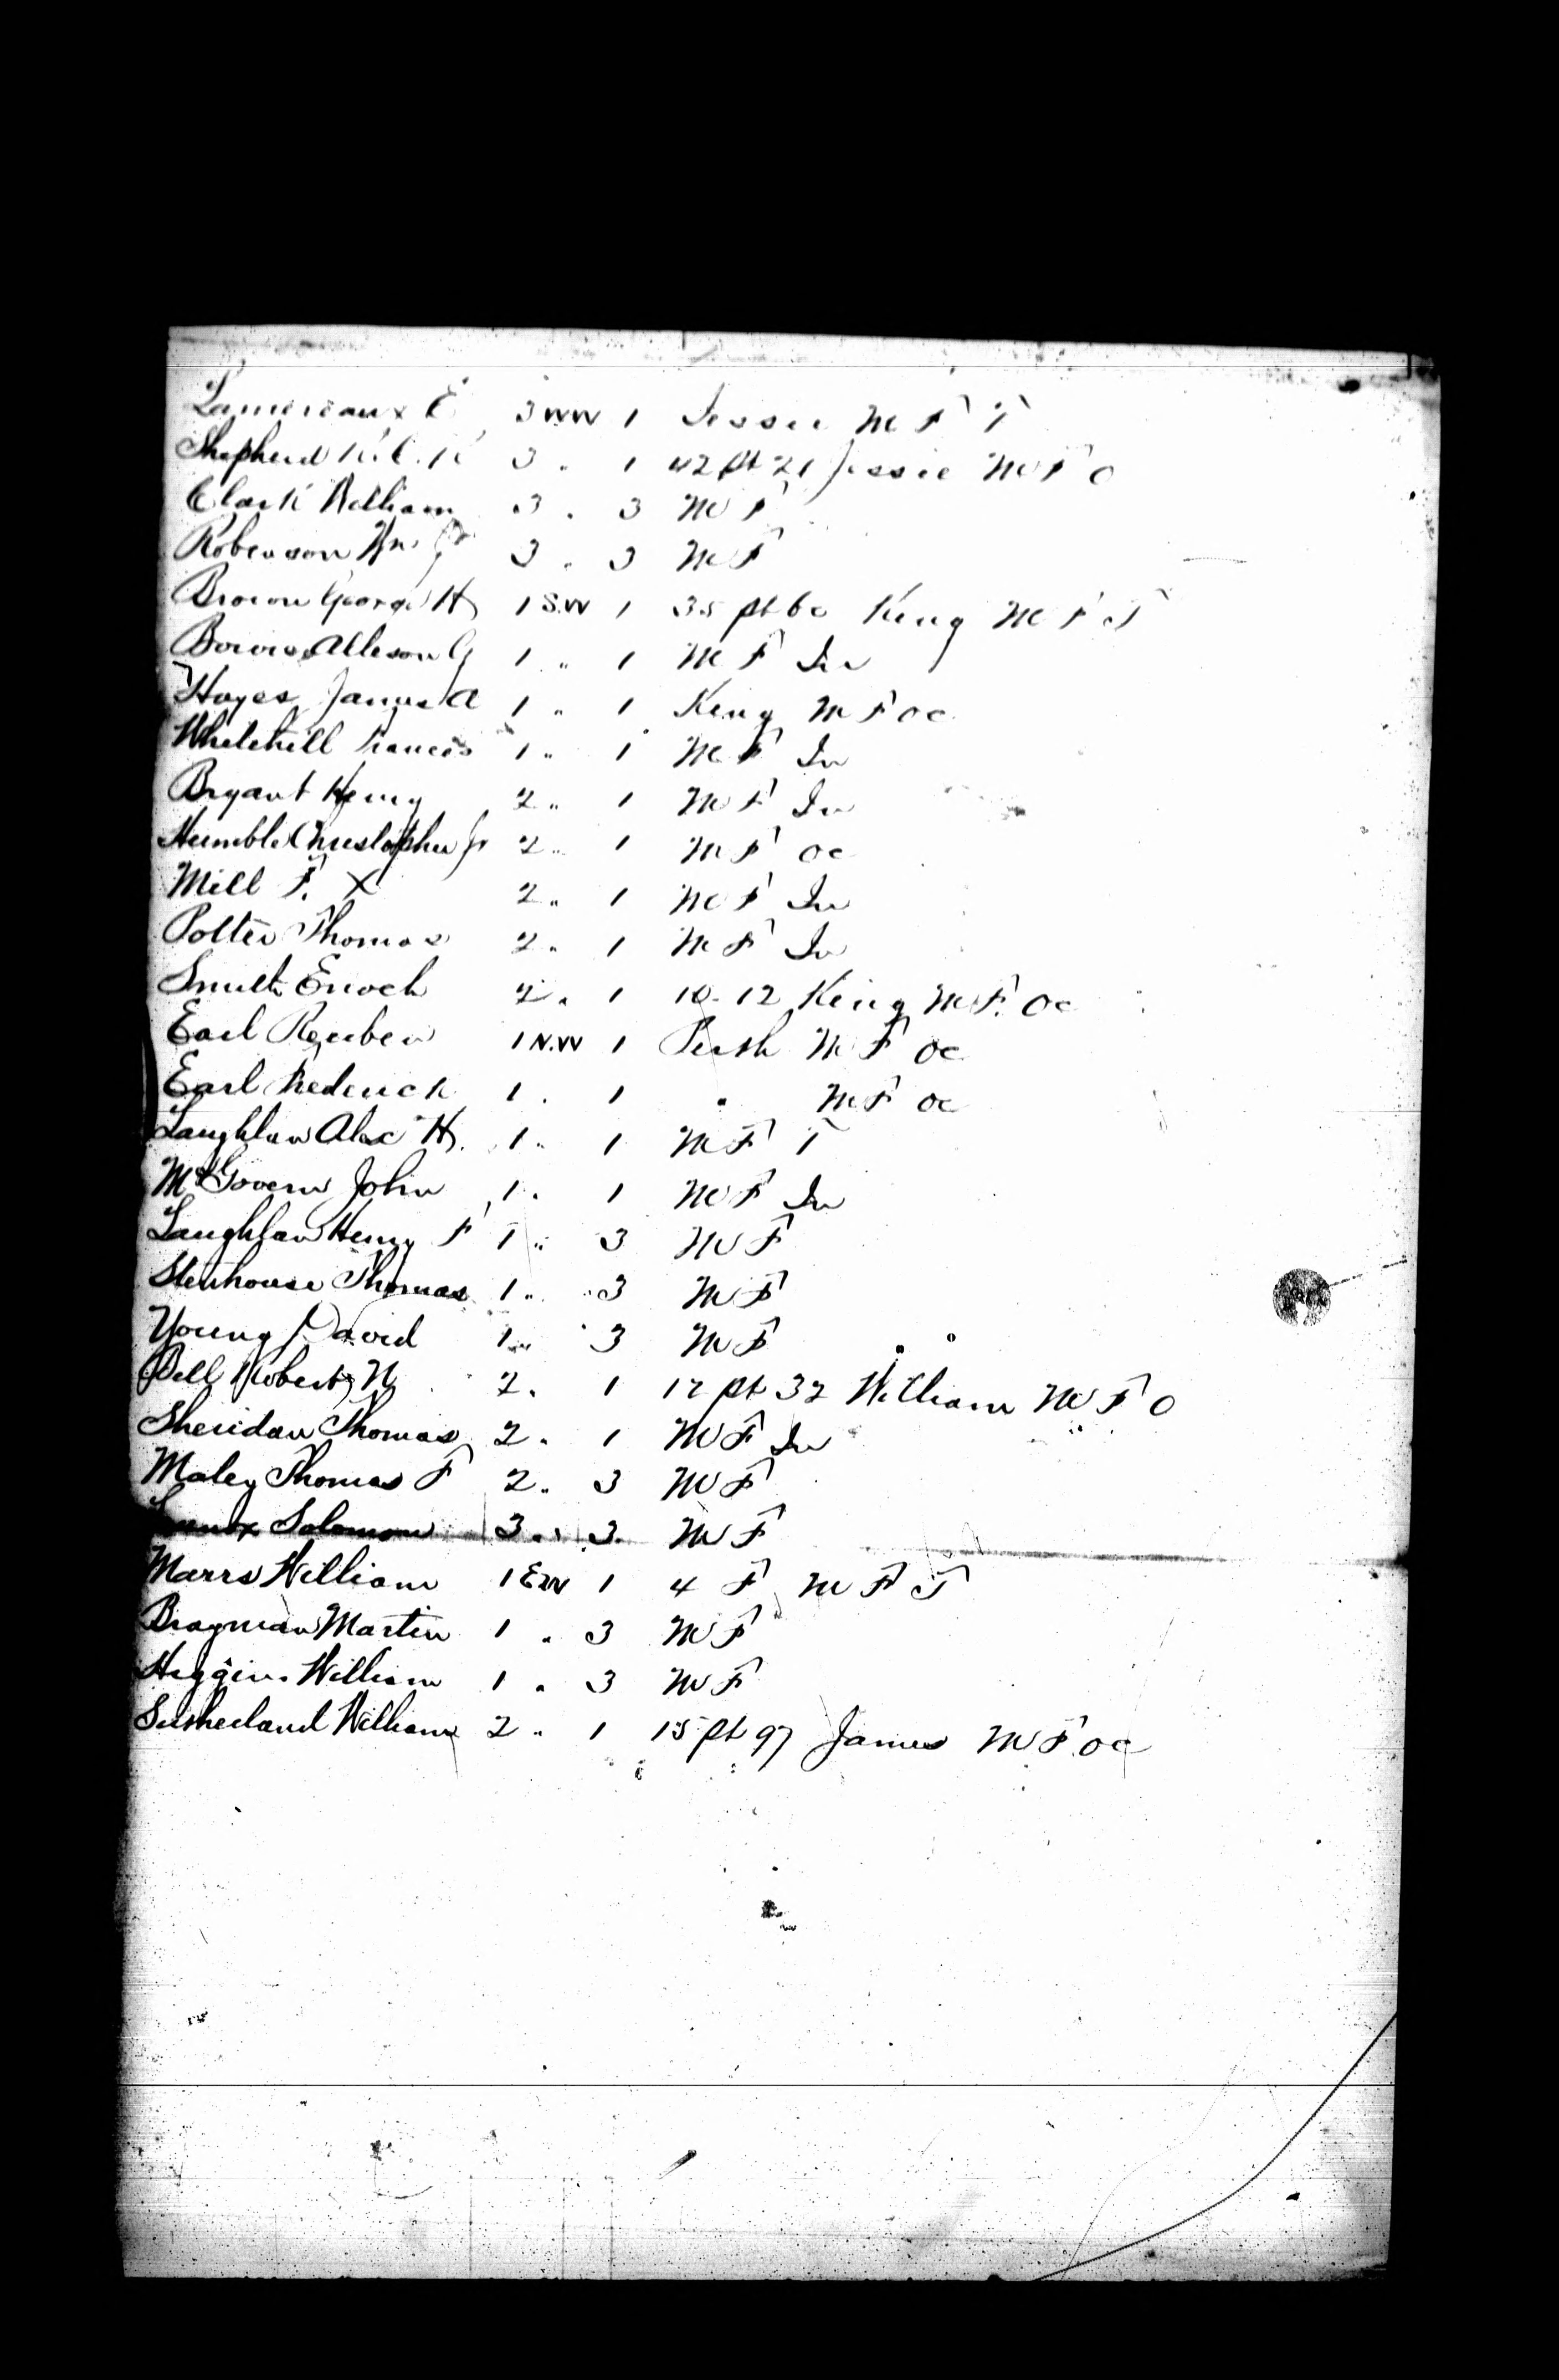 Lamereaux E 3 WW 1 Jessie M F T
Shepherd R.C.K 3 " 1 42 pt 21 Jessie M F O
Clark William 3 " 3 M F
Robenson Wm Jr 3 " 3 M F
Brown George H 1 S.W 1 35 pt 60 King M F T
Bowes Alleson G 1 " 1 M F In
Hayes James A 1 " 1 King M F Oc
Whitehill Francis 1 " 1 M F In
Bryant Henry 2 " 1 M F In
Humble Christopher Jr 2 " 1 M F Oc
Mill F. X 2 " 1 M F In
Potter Thomas 2 " 1 M F In
Smith Enoch 2 " 1 10-12 King M F Oc
Earl Reuben 1 N.W 1 Perth M F Oc
Earl Frederick 1 " 1 " M F Oc
Laughlan Alex H. 1 " 1 M F T
McGovern John 1 " 1 M F In
Laughlan Henry F 1 " 3 M F
Stenhouse Thomas 1 " 3 M F
Young David 1 " 3 M F
Bell Robert N 2 " 1 17 pt 32 William M F O
Sheridan Thomas 2 " 1 M F In
Maley Thomas F 2 " 3 M F
Solomon 3 " 3 M F
Marrs William 1 EW 1 4 F M F T
Bragman Martin 1 " 3 M F
Higgins William 1 " 3 M F
Sutherland William 2 " 1 15 pt 97 James M F Oc